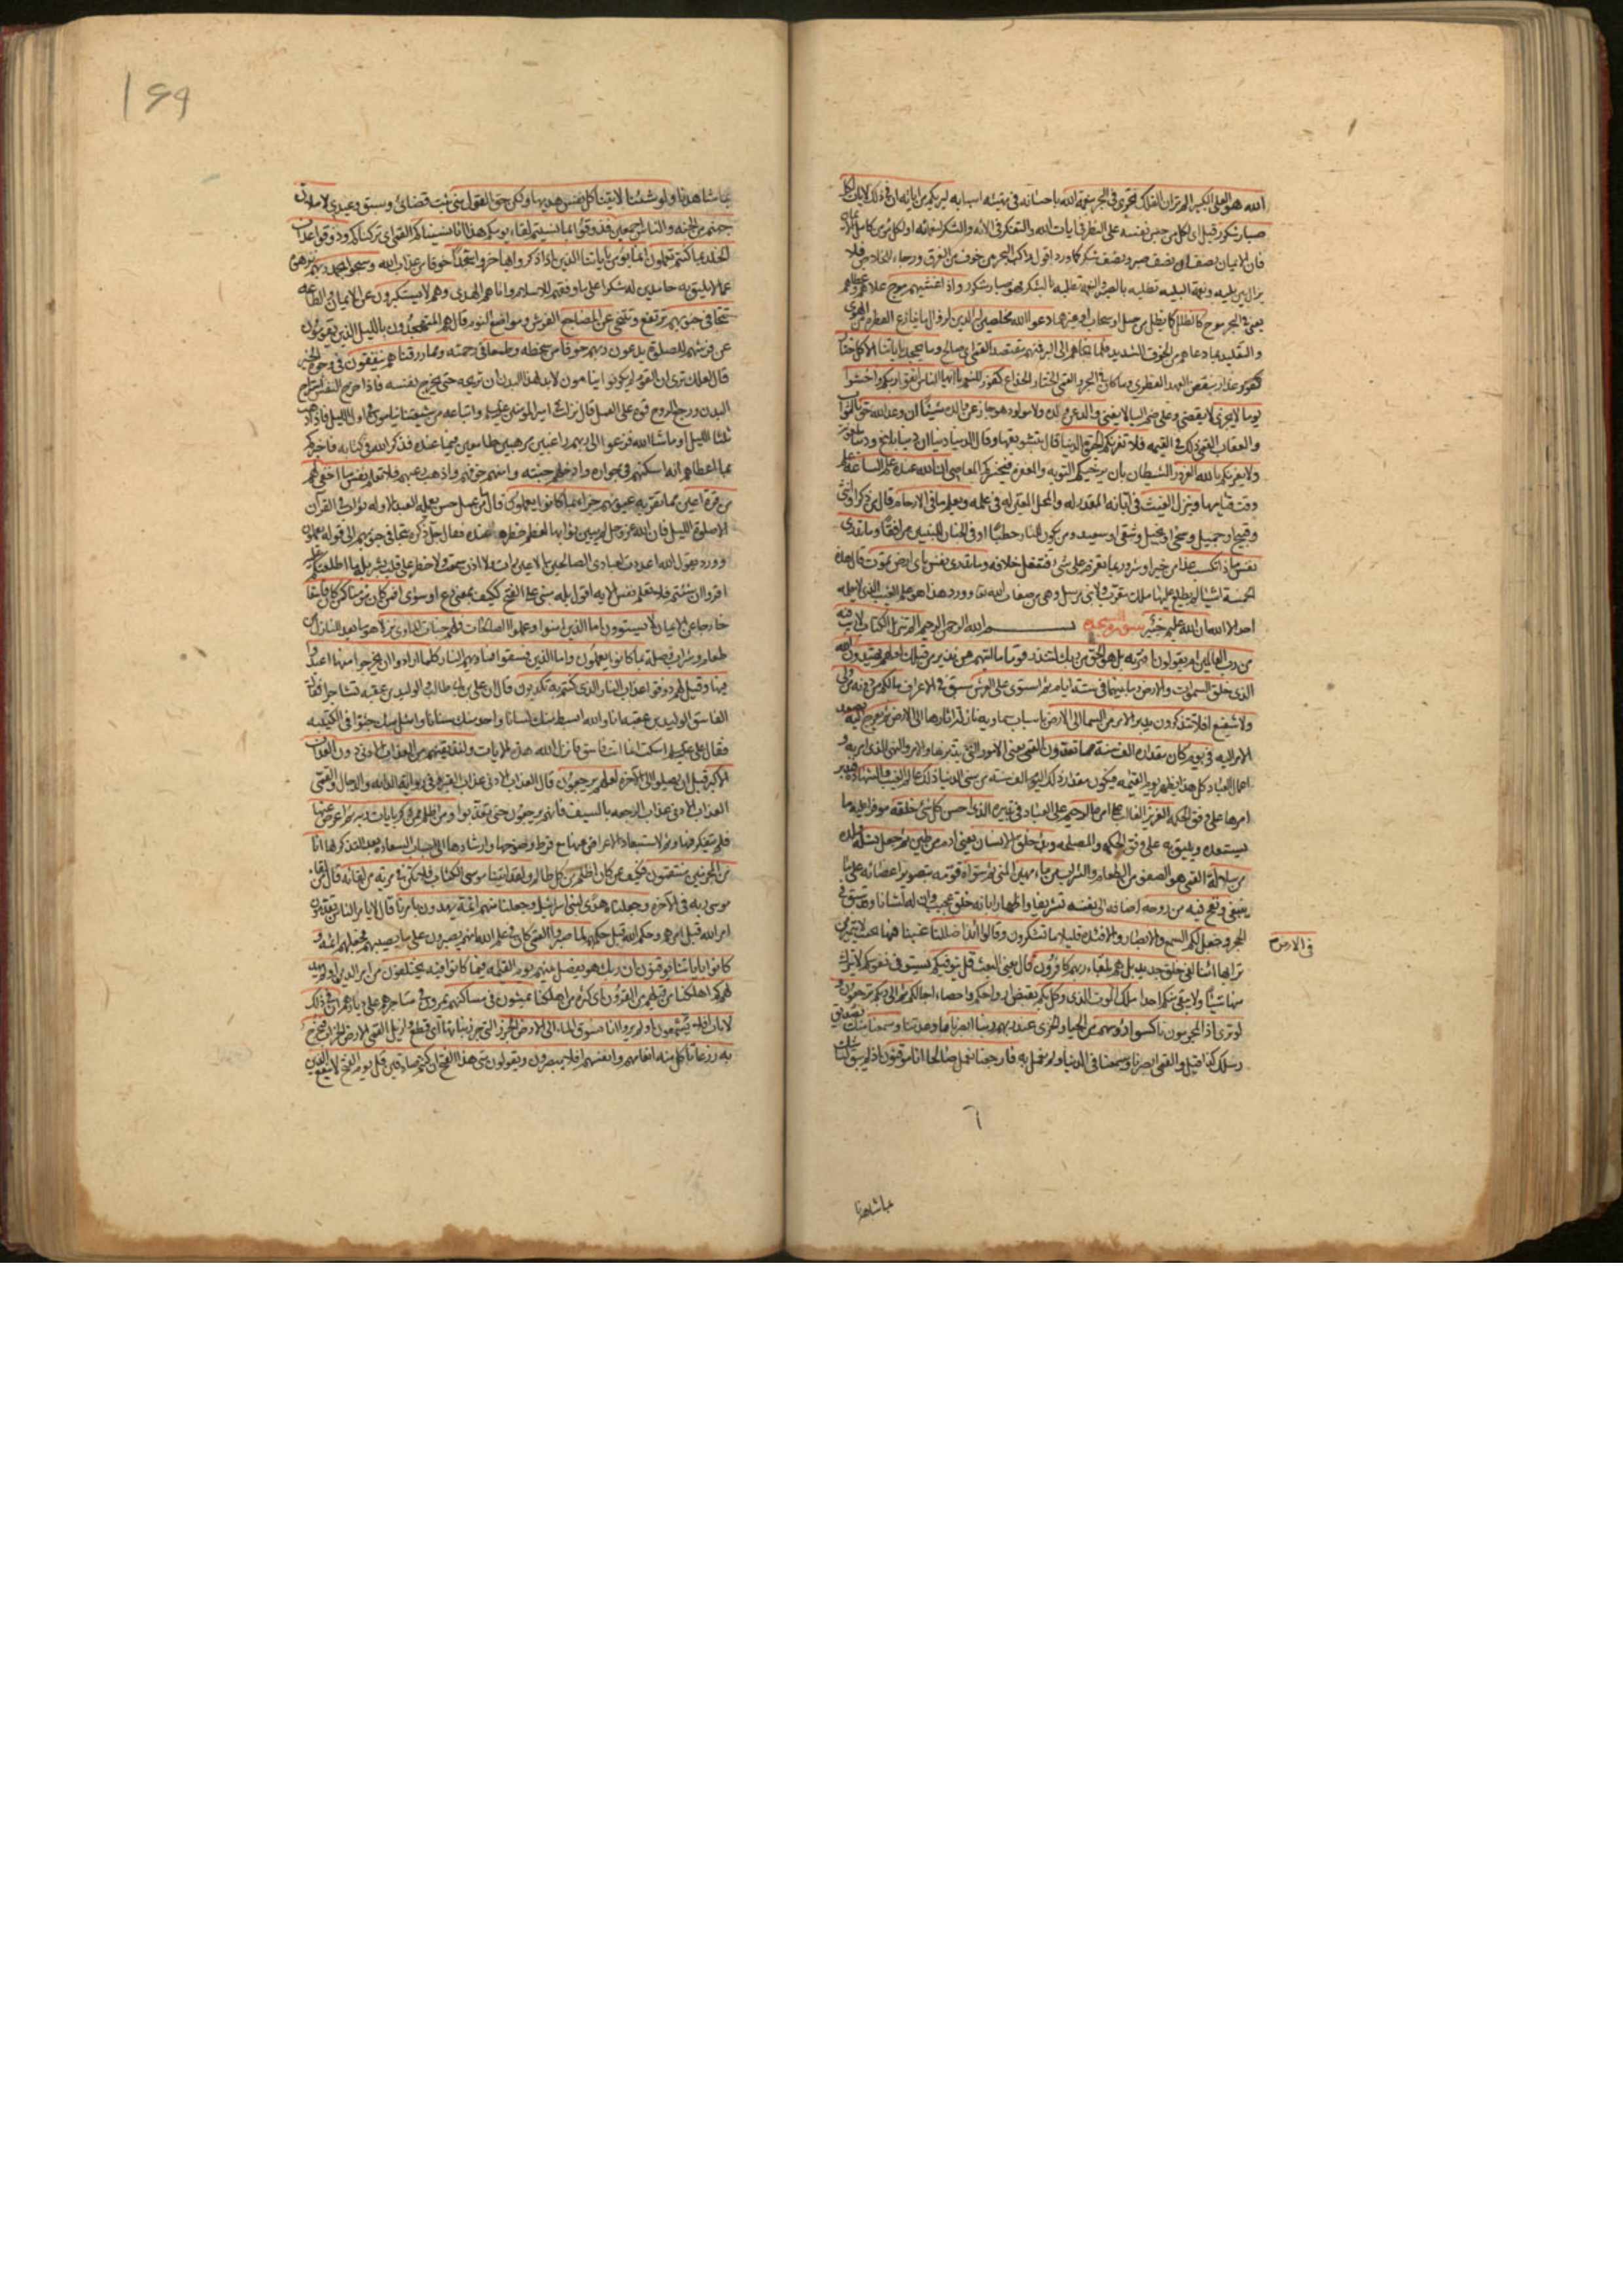 الله هو العلى الكبير الم تر ان الفلك تجرى فى البحر بنعمة الله باحسانه فى تهيئه اسبابه ليريكم من اياته ان فى ذلك لايات لكل
صبار شكور قيل اى لكل من حبس نفسه على النظر فى ايات الله والتفكر فى الائه والشكر لنعمائه او لكل مؤمن كامل الايمان
فان الايمان نصفان نصف صبر ونصف شكر كما ورد اقول راكب البحر بين خوف من الغرق ورجاء الخلاص فلا
يزال بين بليه ونعمة البليه تطلبه بالصبر والنعمه تطلبه بالشكر فهو صبار شكور واذا غشيهم موج علاهم وغطاهم
يعنى فى البحر موج كالظلل كما يظل من جبل او سحاب او غيرهما دعوا الله مخلصين له الدين لزوال ما ينازع الفطره من الهوى
والتقليد بما دعاهم من الخوف الشديد فلما نجاهم الى البر فمنهم مقتصد القمى اى صالح وما يجحد باياتنا الا كل ختار
كفور غدار ينقض العهد الفطرى وما كان فى البحر والقمى الختار الخداع كفور للنعم يا ايها الناس اتقوا ربكم واخشوا
يوما لا يجزى لا يقضى وعلى ضم اليا لا يغنى والد عن ولده ولا مولود هو جاز عن والده شيئا ان وعد الله حق بالثواب
والعقاب القمى ذلك فى القيمه فلا تغرنكم الحيوة الدنيا
ولا يغرنكم بالله الغرور الشيطان بان يرجيكم التوبه والمغفره فيجسركم على المعاصى ان الله عنده علم الساعه علم
وقت قيامها وينزل الغيث فى ابانه المقدر له والمحل المعين له فى علمه ويعلم ما فى الارحام قال من ذكر او انثى
وقبيح او جميل وسخى او بخيل وشقى او سعيد ومن يكون للنار حطبا او فى الجنان للنبيين مرافقا وما تدرى
نفس ماذا تكسب غدا من خير او شر وربما تعزم على شئ فتفعل خلافه وما تدرى نفس باى ارض تموت قال هذه
الخمسة اشيا لم يطلع عليها ملك مقرب ولا نبى مرسل وهى من صفات الله تعا وورد هذا هو علم الغيب الذى لا يعلمه
احد الا الله ان الله عليم خبير سورة السجده بسم الله الرحمن الرحيم الم تنزيل الكتاب لا ريب فيه
من رب العالمين ام يقولون افتريه بل هو الحق من ربك لتنذر قوما ما اتيهم من نذير من قبلك لعلهم يهتدون الله
الذى خلق السموات والارض وما بينهما فى ستة ايام ثم استوى على العرش سبق فى الاعراف ما لكم من دونه من ولى
ولا شفيع افلا تتذكرون يدبر الامر من السما الى الارض باسباب سماويه نازلة اثارها الى الارض ثم يعرج اليه يصعد
الامر اليه فى يوم كان مقداره الف سنة مما تعدون القمى يعنى الامور التى يدبرها والامر والنهى الذى امر به و
اعمال العباد كل هذا يظهره يوم القيمه فيكون مقدار ذلك اليوم الف سنه من سنى الدنيا ذلك عالم الغيب والشهاده فيدبر
امرها على وفق الحكمه العزيز الغالب على امره الرحيم على العباد فى تدبيره الذى احسن كل شئ خلقه موفرا عليه ما
يستعده ويليق به على وفق الحكمه والمصلحه وبدا خلق الانسان يعنى ادم من طين ثم جعل نسله ولده
من سلالة القمى هو الصفو من الطعام والشراب من ماء مهين المنى ثم سواه قومه بتصوير اعضائه على ما
ينبغى ونفخ فيه من روحه اضافه الى نفسه تشريفا واظهارا بانه خلق عجيب وان له لشانا وقد سبق فى
الحجر وجعل لكم السمع والابصار والافئدة قليلا ما تشكرون وقالوا ائذا ضللنا غيبنا فيها بحيث لا يتميز من
فى الارض
ترابها ائنا لفى خلق جديد بل هم بلقاء ربهم كافرون قال يعنى البعث قل يتوفيكم يستوفى نفوسكم لا يترك
منها شيئا ولا يبقى منكم احدا ملك الموت الذى وكل بكم بقبض ارواحكم واحصاء اجالكم ثم الى ربكم ترجعون و
لو ترى اذ المجرمون ناكسوا رؤسهم من الحياء والخزى عند ربهم ربنا ابصرنا ما وعدتنا وسمعنا منك تصديق
رسلك كذا قيل والقمى ابصرنا وسمعنا فى الدنيا ولم نعمل به فارجعنا نعمل صالحا انا موقنون اذ لم يبق لنا شك
بما شاهدنا
١٤٩
بما شاهدنا ولو شئنا لاتينا كل نفس هديها ولكن حق القول منى ثبت قضائى وسبق وعيدى لاملان
جهنم من الجنه والناس اجمعين فذوقوا بما نسيتم لقاء يومكم هذا انا نسيناكم القمى اى تركناكم وذوقوا عذاب
الخلد بما كنتم تعملون انما يؤمن باياتنا الذين اذا ذكروا بها خروا سجدا خوفا من عذاب الله وسبحوا بحمد ربهم نزهوه
عما لا يليق به حامدين له شكرا على ما وفقهم للاسلام واتاهم الهدى وهم لا يستكبرون عن الايمان والطاعه
تتجافى جنوبهم ترتفع وتتنحى عن المضاجع الفرش ومواضع النوم قال هم المتهجدون بالليل الذين يقومون
عن فرشهم للصلوة يدعون ربهم خوفا من سخطه وطمعا فى رحمته ومما رزقناهم ينفقون فى وجوه الخير
قال لعلك ترى ان القوم لم يكونوا ينامون لا بد لهذا البدن ان تريحه حتى يخرج نفسه فاذا خرج النفس استراح
البدن ورجع الروح قوة على العمل قال نزلت فى امير المؤمنين عليه السلم واتباعه من شيعتنا ينامون فى اول الليل فاذا ذهب
ثلثا الليل او ما شاء الله فزعوا الى ربهم راغبين مرهبين طامعين فيما عنده فذكر الله فى كتابه فاخبركم
بما اعطاهم انه اسكنهم فى جواره وادخلهم جنته وامنهم خوفهم واذهب رعبهم فلا تعلم نفس ما اخفى لهم
من قرة اعين مما تقر به عيونهم جزاء بما كانوا يعملون قال ما من عمل حسن يعمله العبد الا وله ثواب فى القرآن
الا صلوة الليل فان الله عز وجل لم يبين ثوابها لعظم خطرها عنده فقال جل ذكره تتجافى جنوبهم الى قوله يعملون
وورد يقول الله اعددت لعبادى الصالحين ما لا عين رات ولا اذن سمعت ولا خطر على قلب بشر بله ما اطلعتكم عليه
اقرؤا ان شئتم فلا تعلم نفس الايه اقول بله مبنى على الفتح ككيف بمعنى دع او سوى افمن كان مؤمنا كمن كان فاسقا
خارجا عن الايمان لا يستوون اما الذين امنوا وعملوا الصالحات فلهم جنات الماوى نزلا هو ما يعد للنازل من
طعام وشراب وصلة بما كانوا يعملون واما الذين فسقوا فماويهم النار كلما ارادوا ان يخرجوا منها اعيدوا
فيها وقيل لهم ذوقوا عذاب النار الذى كنتم به تكذبون قال ان على بن ابى طالب والوليد بن عقبه تشاجرا فقال
الفاسق الوليد بن عقبه انا والله ابسط منك لسانا واحد منك سنانا وامثل منك جثوا فى الكتيبه
فقال على عليه السلم اسكت انما انت فاسق فانزل الله هذه الايات ولنذيقنهم من العذاب الادنى دون العذاب
الاكبر قبل ان يصلوا الى الآخره لعلهم يرجعون قال العذاب الادنى عذاب القبر وفى روايه الدابه والدجال والقمى
العذاب الادنى عذاب الرجعه بالسيف فانهم يرجعون حتى يعذبوا ومن اظلم ممن ذكر بايات ربه ثم اعرض عنها
فلم يتفكر فيها وثم لاستبعاد الاعراض عنها مع فرط وضوحها وارشادها الى اسباب السعاده بعد التذكر بها انا
من المجرمين منتقمون فكيف بمن كان اظلم من كل ظالم ولقد اتينا موسى الكتاب فلا تكن فى مرية من لقائه قال من لقاء
موسى ربه فى الآخره وجعلناه هدى لبنى اسرائيل وجعلنا منهم ائمة يهدون بامرنا قال لا بامر الناس يقدمون
امر الله قبل امرهم وحكم الله قبل حكمهم لما صبروا القمى كان فى علم الله انهم يصبرون على ما يصيبهم فجعلهم ائمه و
كانوا باياتنا يوقنون ان ربك هو يفصل بينهم يوم القيمه فيما كانوا فيه يختلفون من امر الدين اولم يهد
لهم كم اهلكنا من قبلهم من القرون اى كثرة من اهلكنا يمشون فى مساكنهم يمرون فى متاجرهم على ديارهم ان فى ذلك
لايات افلا يسمعون اولم يروا انا نسوق الماء الى الارض الجرز التى جرز نباتها اى قطع وازيل القمى الارض الخراب فنخرج
به زرعا تاكل منه انعامهم وانفسهم افلا يبصرون ويقولون متى هذا الفتح ان كنتم صادقين قل يوم الفتح لا ينفع الذين